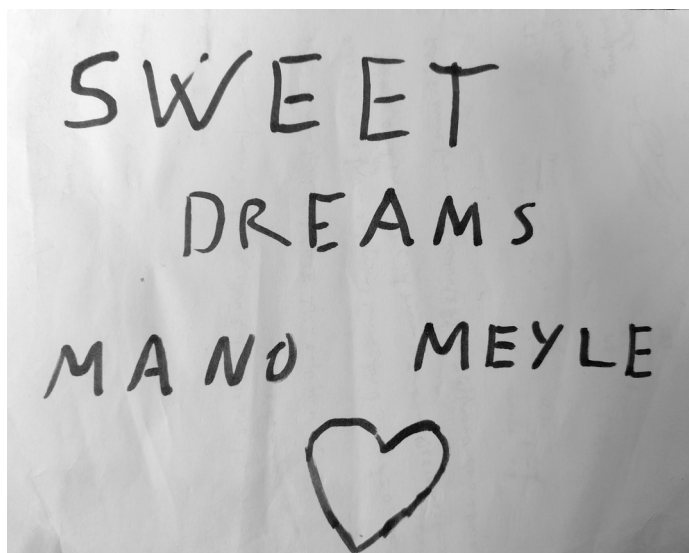 SWEET
DREAMS
MANO MEYLE